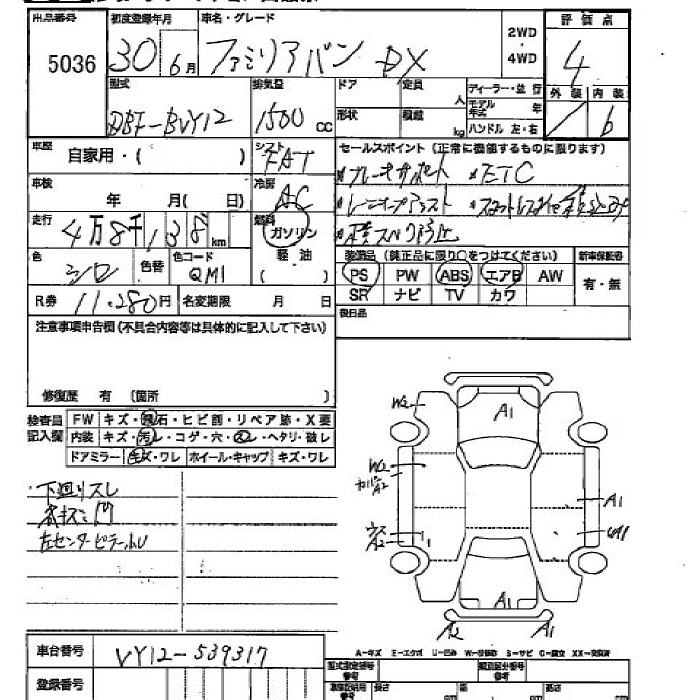 出品番号 初度登録年月 車名・グレード 2WD 評価点
5036 30 6月 ファミリアバン DX 4WD 4
型式 排気量 ドア 定員 人 ディーラー・並行 外装 内装
DBF-BVY12 1500 CC 形状 積載 kg モデル年式 年 b
ハンドル 左・右
車歴 自家用・( ) シフト FAT セールスポイント (正常に機能するものに限ります)
ブレーキサポート ETC
車検 年 月( 日) 冷房 AC
走行 4万8千138km 燃料 ガソリン
軽油
( )
横スベリ防止
色 シロ 色替 色コード QM1 装備品 (純正品に限り○をつけてください) 新車保証書
PS PW ABS エアB AW 有・無
SR ナビ TV カワ
R券 11,280円 名変期限 月 日 後日品
注意事項申告欄 (不具合内容等は具体的に記入して下さい)
修復歴 有 (箇所 )
検査員 FW キズ・飛石・ヒビ割・リペア跡・X要
記入欄 内装 キズ・汚レ・コゲ・穴・・ヘタリ・破レ
ドアミラー キズ・ワレ ホイール・キャップ キズ・ワレ
W2 A1
下廻りスレ W2
カバーA2
A1
左センターピラー
A2 A1
A2 A1
A-キズ E-エクボ U-凹み W-補修跡 S-サビ C-腐立 XX-交換済
車台番号 VY12-539317
登録番号 型式指定番号 類別区分番号
長さ 幅 高さ